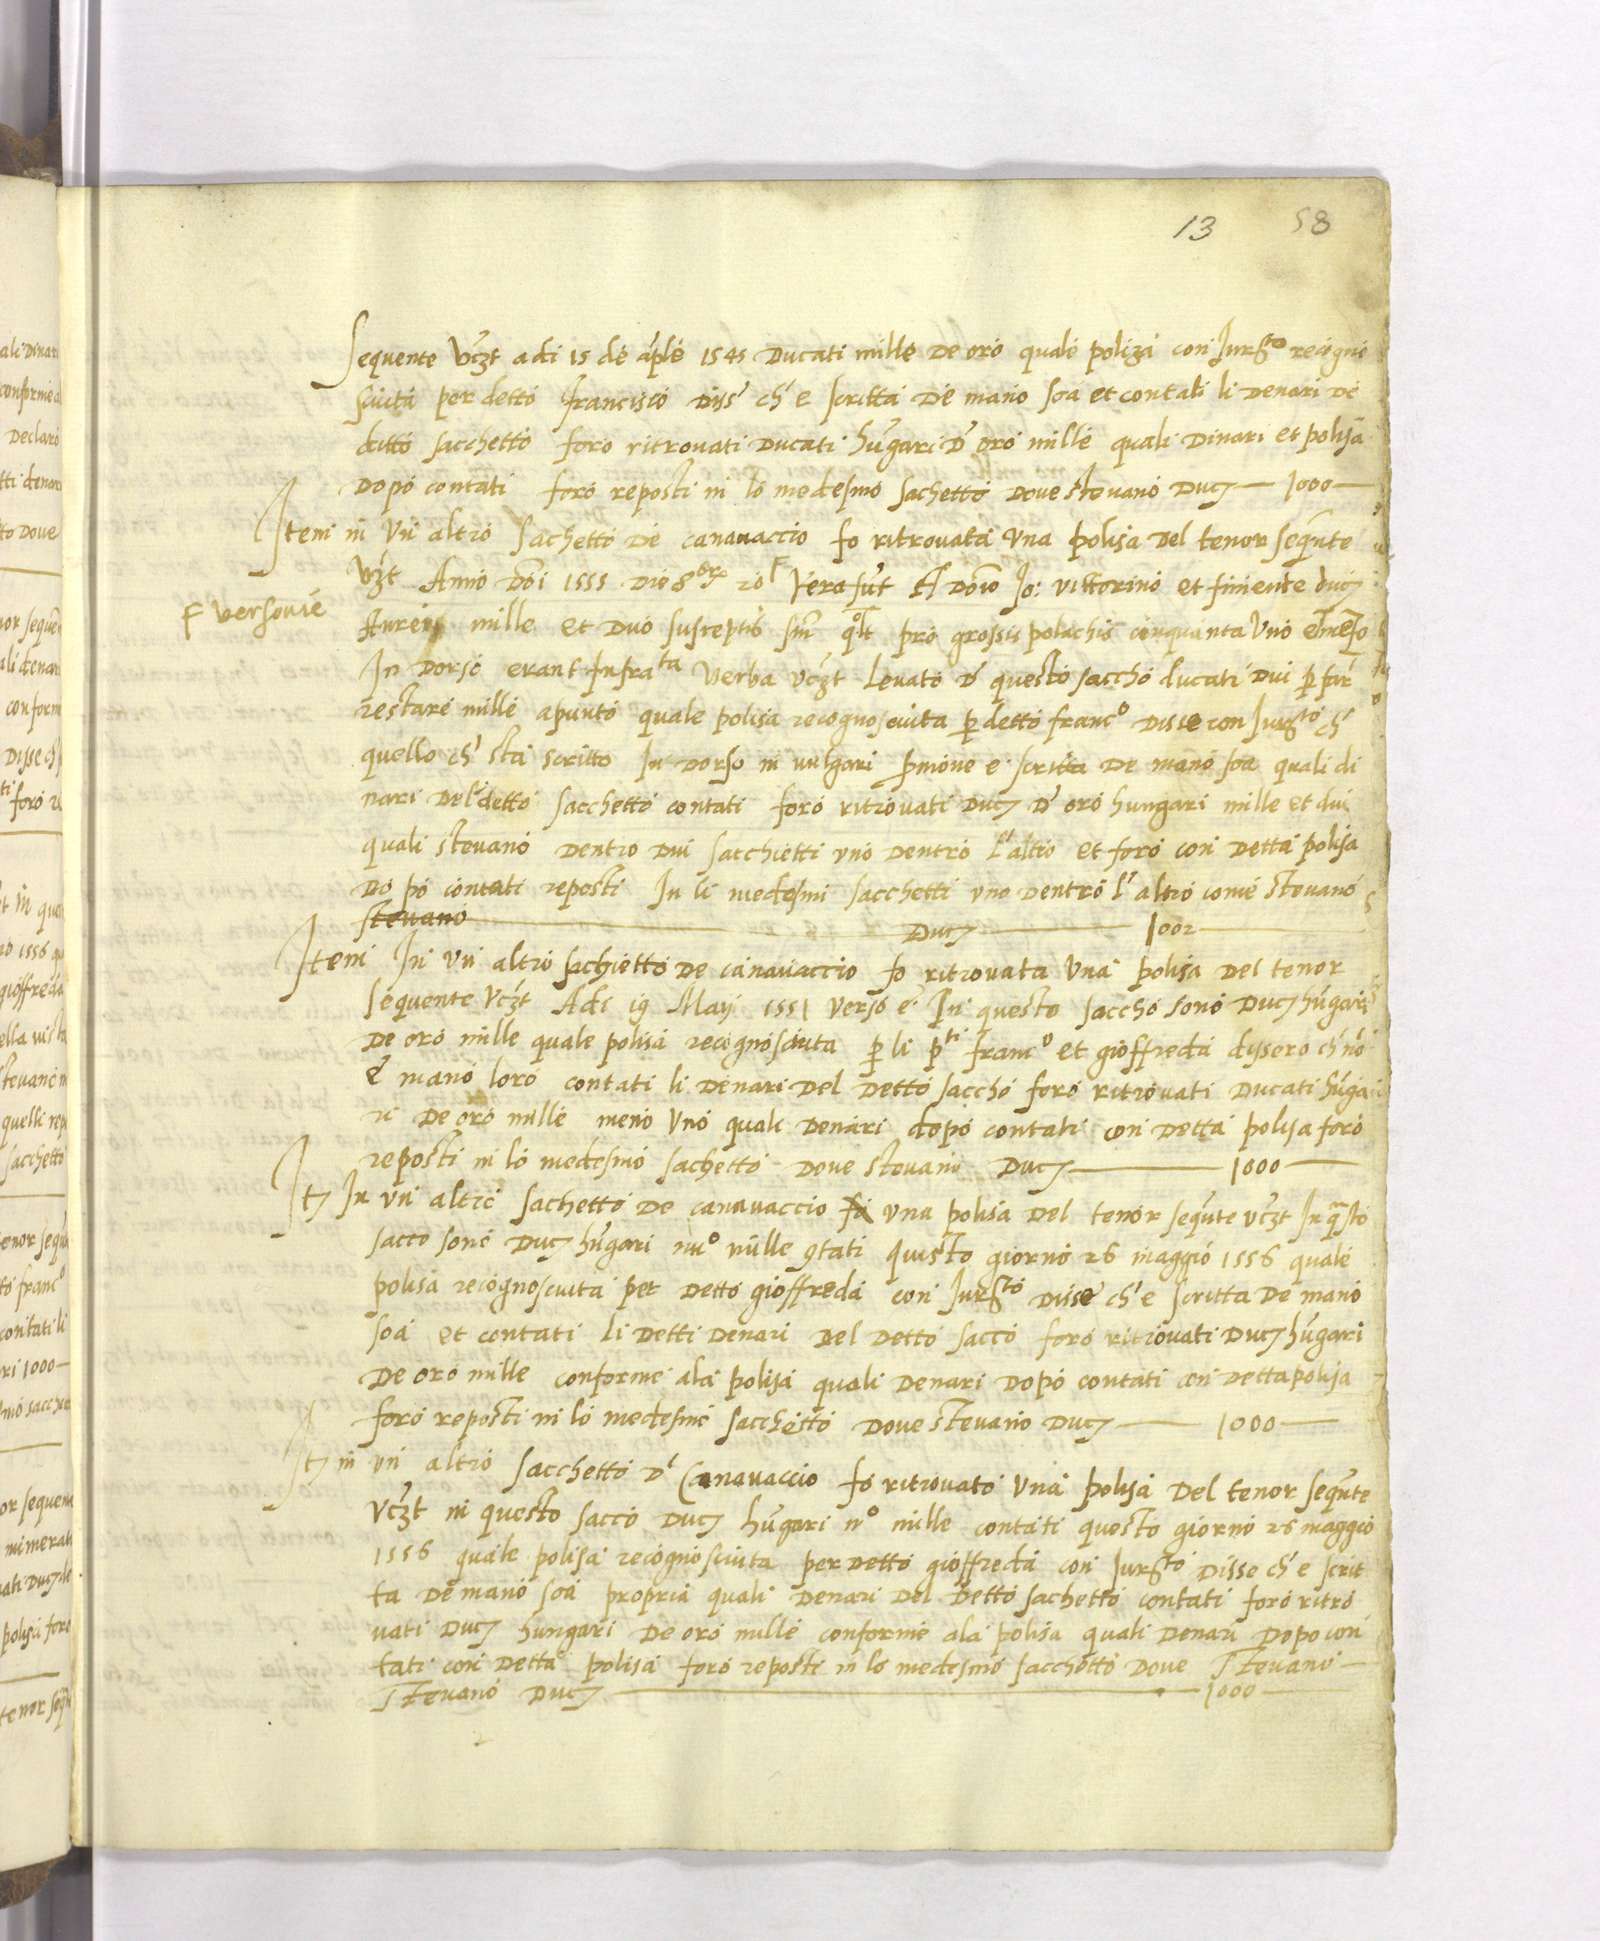 13 58
Sequente vczt adi 15 de aple 1545 Ducati mille de oro quale poliza con Jurto recogno
sciuta per detto Francisco diss' ch' e scritta de mano soa et contati li denari de
ditto sacchetto foro ritrovati ducati hugari d' oro mille quali dinari et polisa
dopo contati foro reposti in lo medesmo sachetto dove stevano duc 1000
Item in un altro sachetto de canavaccio fo ritrovata una polisa del tenor sequnte
vczt Anno Doi 1555 die 8bre 20 F Vera sut Dono Jo: vittorino et finiente duc
F versovie
Aurei mille et duo susceptis pro grossis polachis cinquanta uno
In dorso erant Infrata verba vczt Levato d' questo saccho ducati dui p far
restare mille apunto quale polisa recognosciuta p detto franco disse con Jurto ch'
quello ch' sta scritto In dorso in vulgari smone e scritta de mano soa quali di
nari del detto sacchetto contati foro ritrovati duc d' oro hungari mille et dui
quali stevano dentro dui sacchietti uno dentro l' altro et foro con detta polisa
do po contati reposti In li medesmi sacchetti uno dentro l' altro come stevano
stevano Duc 1002
Item In un altro sachietto de canavaccio fo ritrovata una polisa del tenor
sequente vczt Adi 19 Maij 1551 verso e In questo saccho sono duc hugari
de oro mille quale polisa recognosciuta p li pti franco et gioffreda dissero ch' no
e mano loro contati li denari del detto saccho foro ritrovati ducati huga
ri de oro mille meno uno quali denari dopo contati con detta polisa foro
reposti in lo medesmo sachetto dove stevano Duc 1000
It In un altro sachetto de canavaccio fo una polisa del tenor sequte vczt In qsto
sacco sono duc hugari nuo mille 9tati questo giorno 26 maggio 1556 quale
polisa recognosciuta per detto gioffreda con Jurto disse ch' e scritta de mano
soa et contati li detti denari del detto sacco foro ritrovati duc hugari
de oro mille conforme ala polisa quali denari dopo contati con detta polisa
foro reposti in lo medesmo sacchetto dove stevano duc 1000
It in un altro sacchetto d' Canavaccio fo ritrovato una polisa del tenor sequte
vczt in questo sacco duc hugari no mille contati questo giorno 26 maggio
1556 quale polisa recognosciuta per detto gioffreda con Jurto disse ch' e scrit
ta de mano soa propria quali denari del detto sachetto contati foro ritro
vati duc hungari de oro mille conforme ala polisa quali denari dopo con
tati con detta polisa foro reposti in lo medesmo sacchetto dove stevano
stevano duc 1000